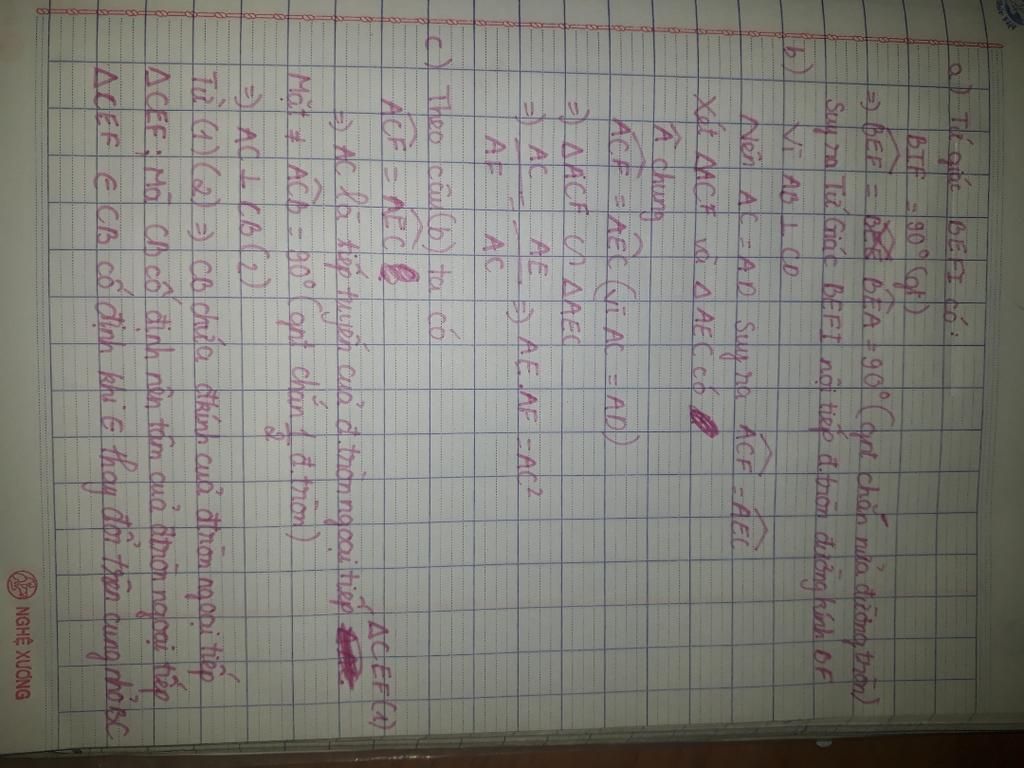 a) Tứ giác BEFI có:
BIF = 90° (gt)
=) BEF = BEA = 90° (gnt chắn nửa đường tròn)
Suy ra Tứ Giác BEFI nội tiếp đ.tròn đường kính BF
b) Vì AB ⊥ CD
Nên AC = AD Suy ra ACF = AEC
Xét ΔACF và ΔAEC có
A chung
ACF = AEC (vì AC = AD)
=) ΔACF ∽ ΔAEC
=) AC/AF = AE/AC =) AE.AF = AC²
c) Theo câu (b) ta có
ACF = AEC
=) AC là tiếp tuyến của đ.tròn ngoại tiếp ΔCEF (1)
Mặt ≠ ACB = 90° (gnt chắn 1/2 đ.tròn)
=) AC ⊥ CB (2)
Từ (1)(2) =) CB chứa đkính của đtròn ngoại tiếp
ΔCEF; Mà CB cố định nên tâm của đtròn ngoại tiếp
ΔCEF ∈ CB cố định khi E thay đổi trên cung nhỏ BC
NGHỆ XƯƠNG